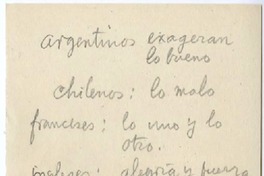 argentinos exageran
lo bueno
chilenos: lo malo
franceses: lo uno y lo
otro.
ingleses: alegría y fuerza